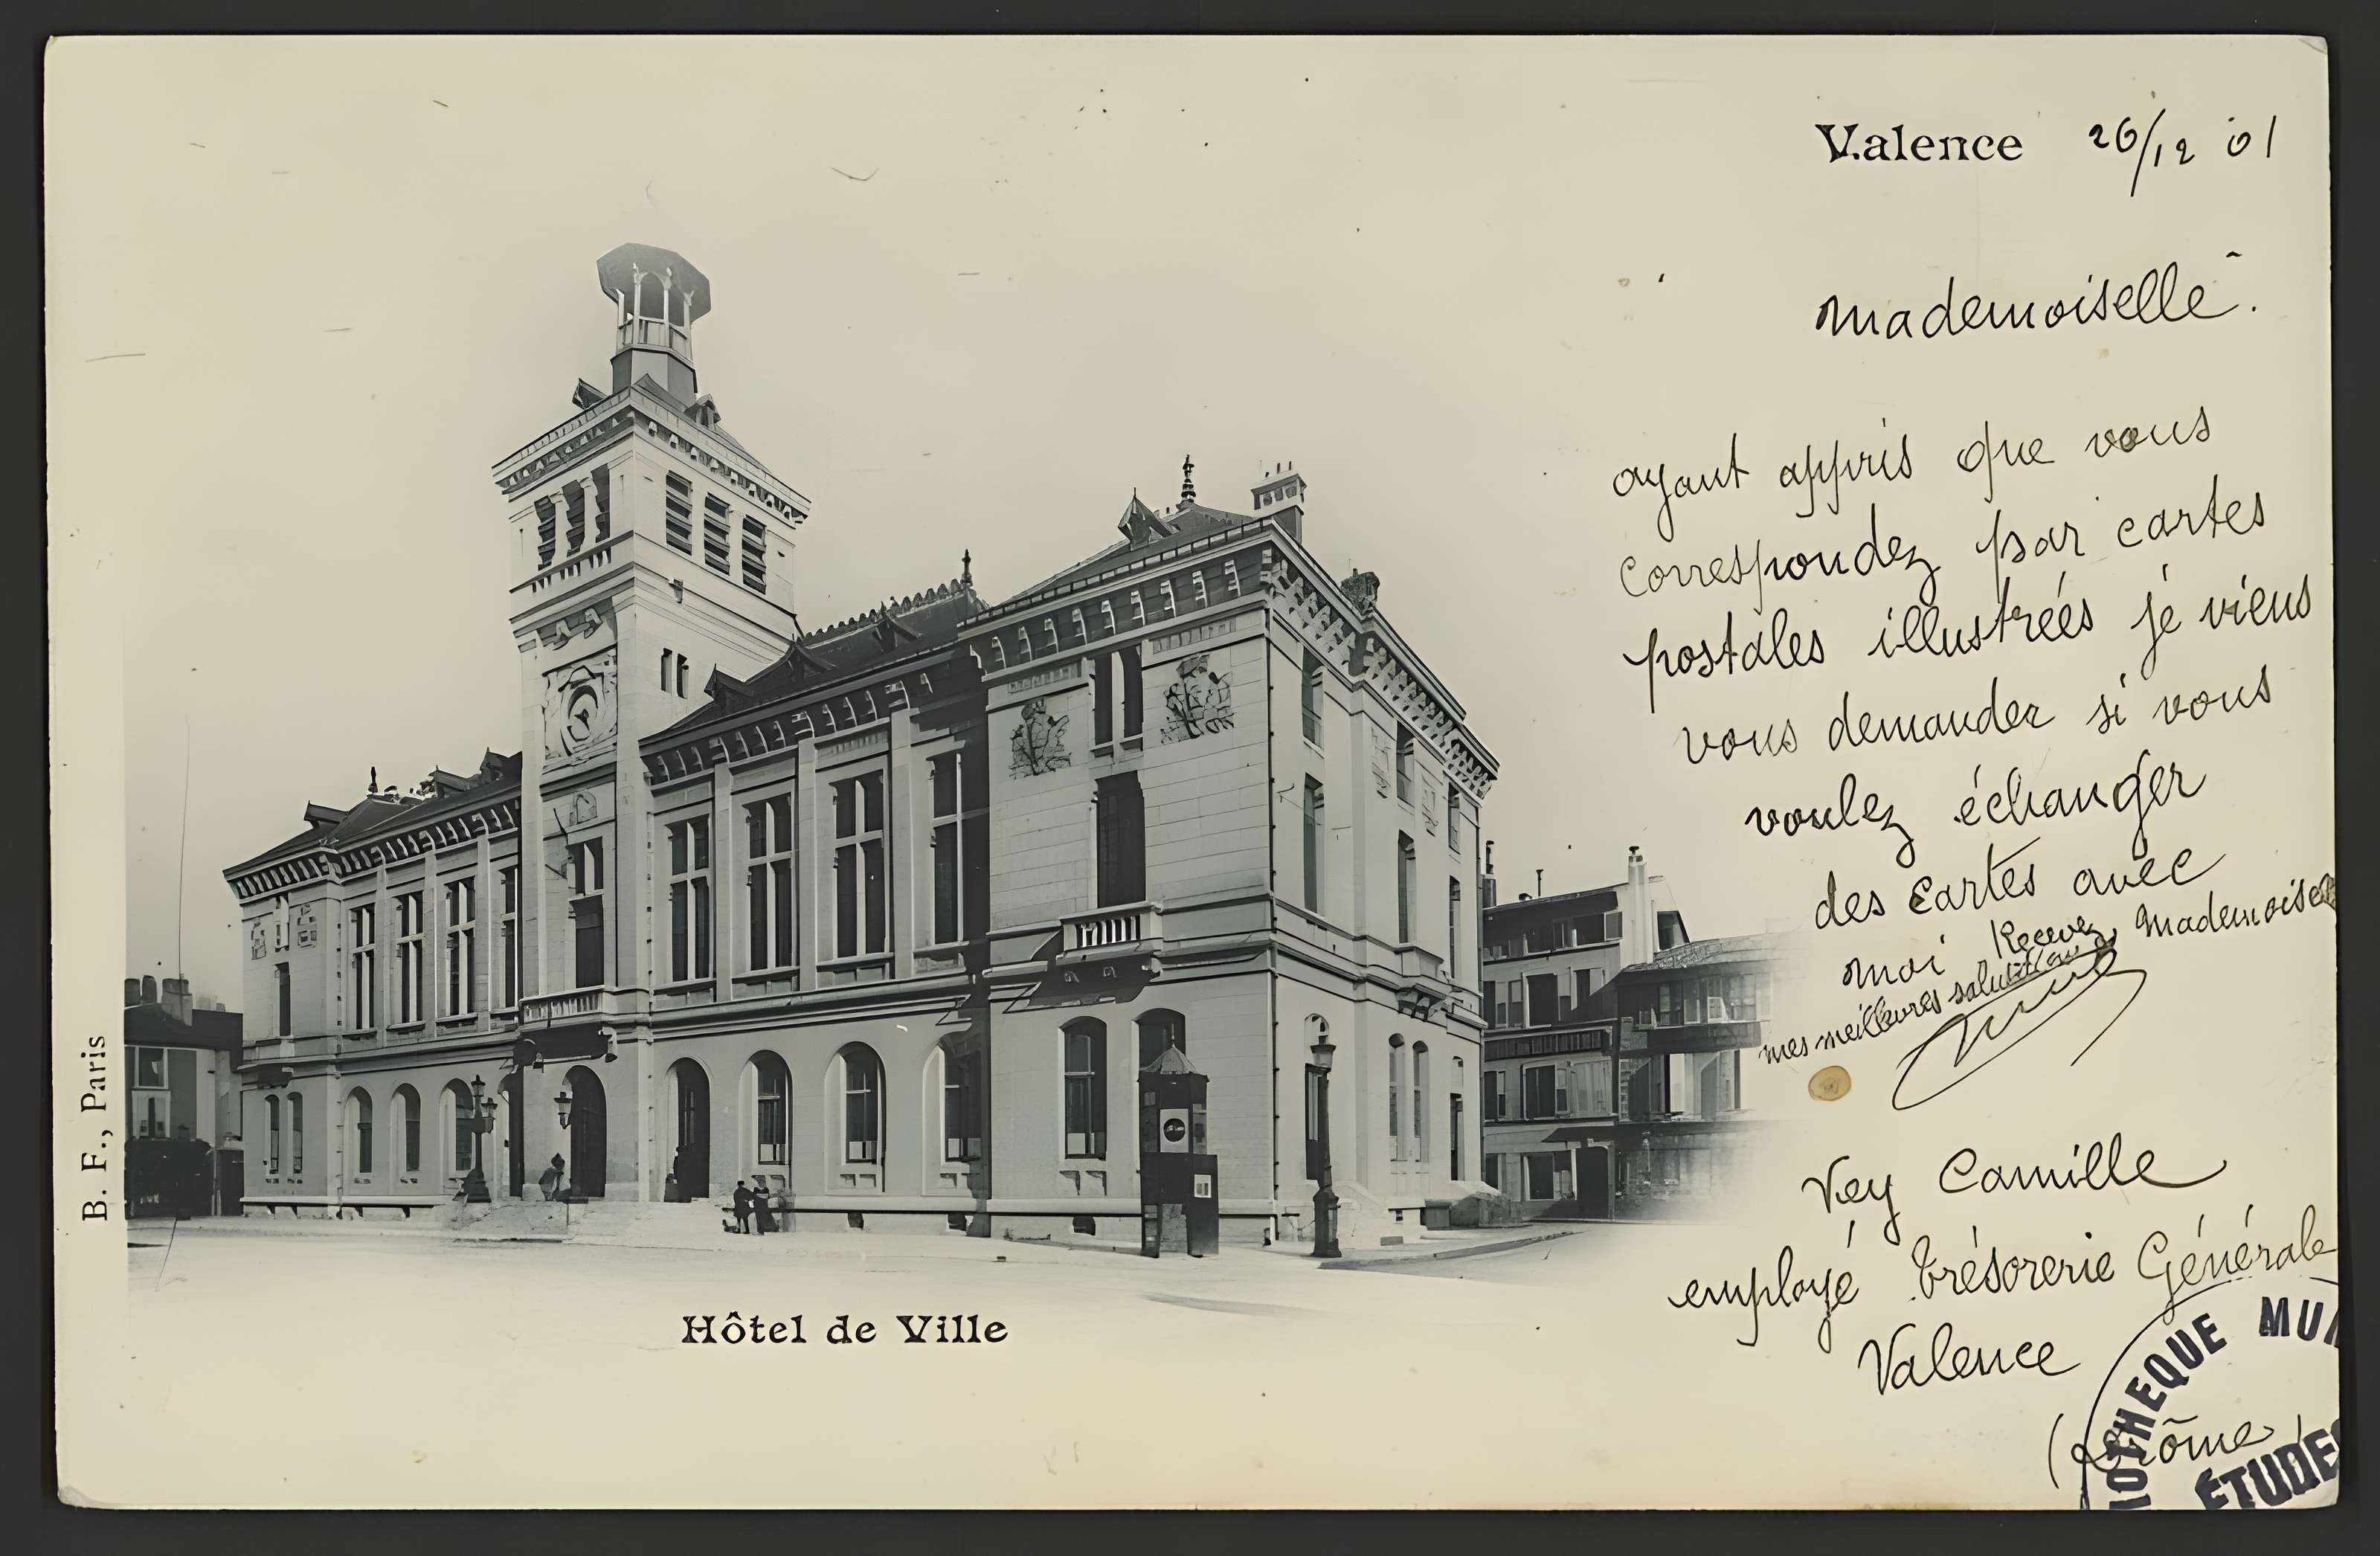 Valence 26/12 01
Mademoiselle.
ayant appris que vous
correspondez par cartes
postales illustrées je viens
vous demander si vous
voulez échanger
des cartes avec
moi Recevez Mademoiselle
mes meilleures salutations
Vey Camille
employé trésorerie Générale
Valence
(Drôme)
Hôtel de Ville
B. F., Paris
IOTHEQUE MUN
ÉTUDES